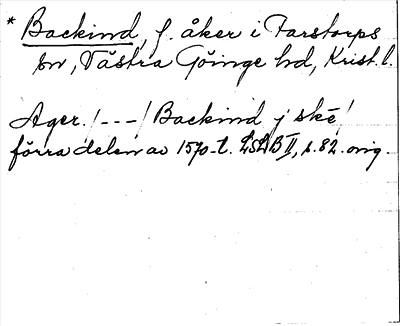 * Backind, f. åker i Farstorps
sn, Västra Göinge hd, Krist. l.
Ager. /---/ Backind j ské/
förra delen av 1570-t. LSLB II, s. 82. orig.